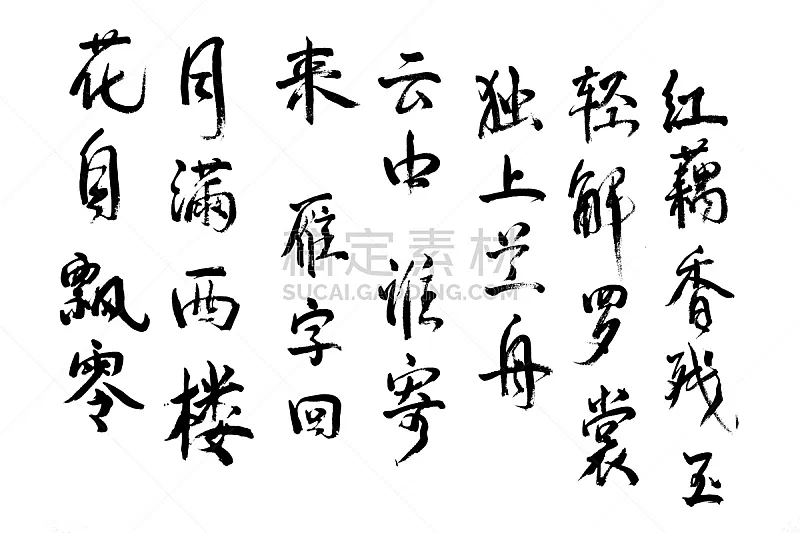 红藕香残玉
轻解罗裳
独上兰舟
云中谁寄
来 雁字回
月满西楼
花自飘零
稿定素材
SUCAI.GAODING.COM